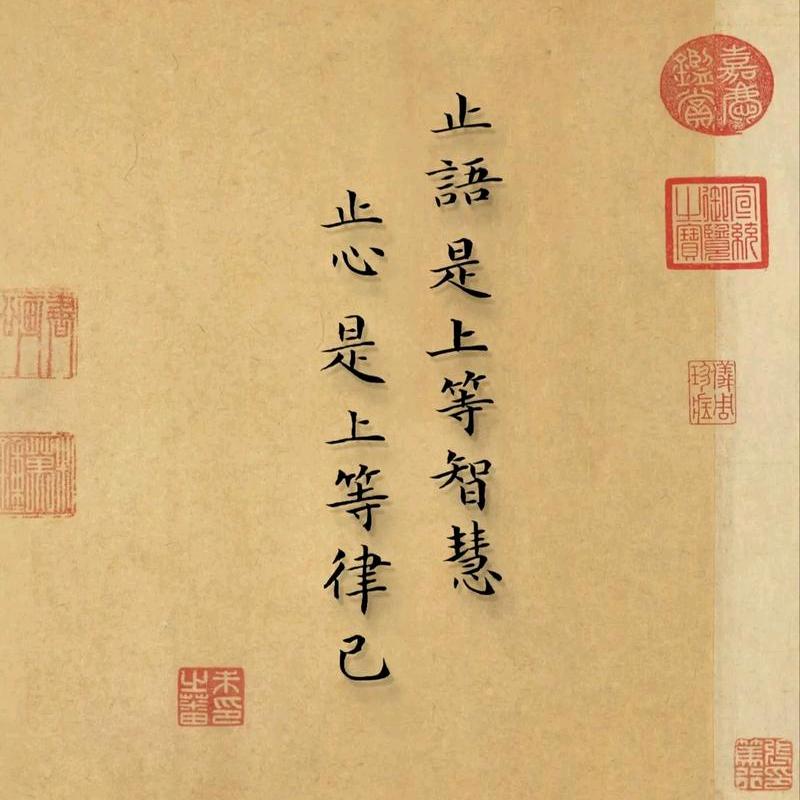 止語是上等智慧
止心是上等律己
嘉慶鑑賞
宣統御覽之寶
儀周珍藏